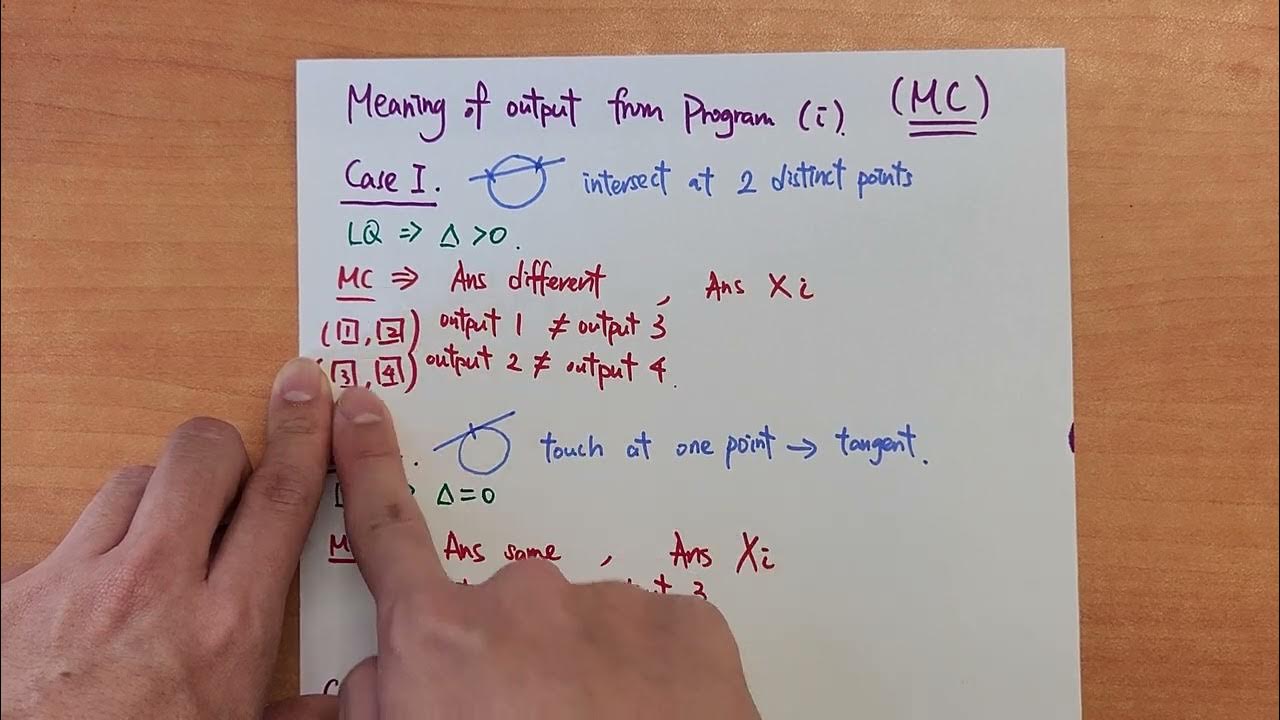 Meaning of output from Program (i). (MC)
Case I. intersect at 2 distinct points
LQ ⇒ Δ >0.
MC ⇒ Ans different , Ans X i
(1, 2) output 1 ≠ output 3
(3, 4) output 2 ≠ output 4.
touch at one point → tangent.
Δ=0
Ans same , Ans X i
3